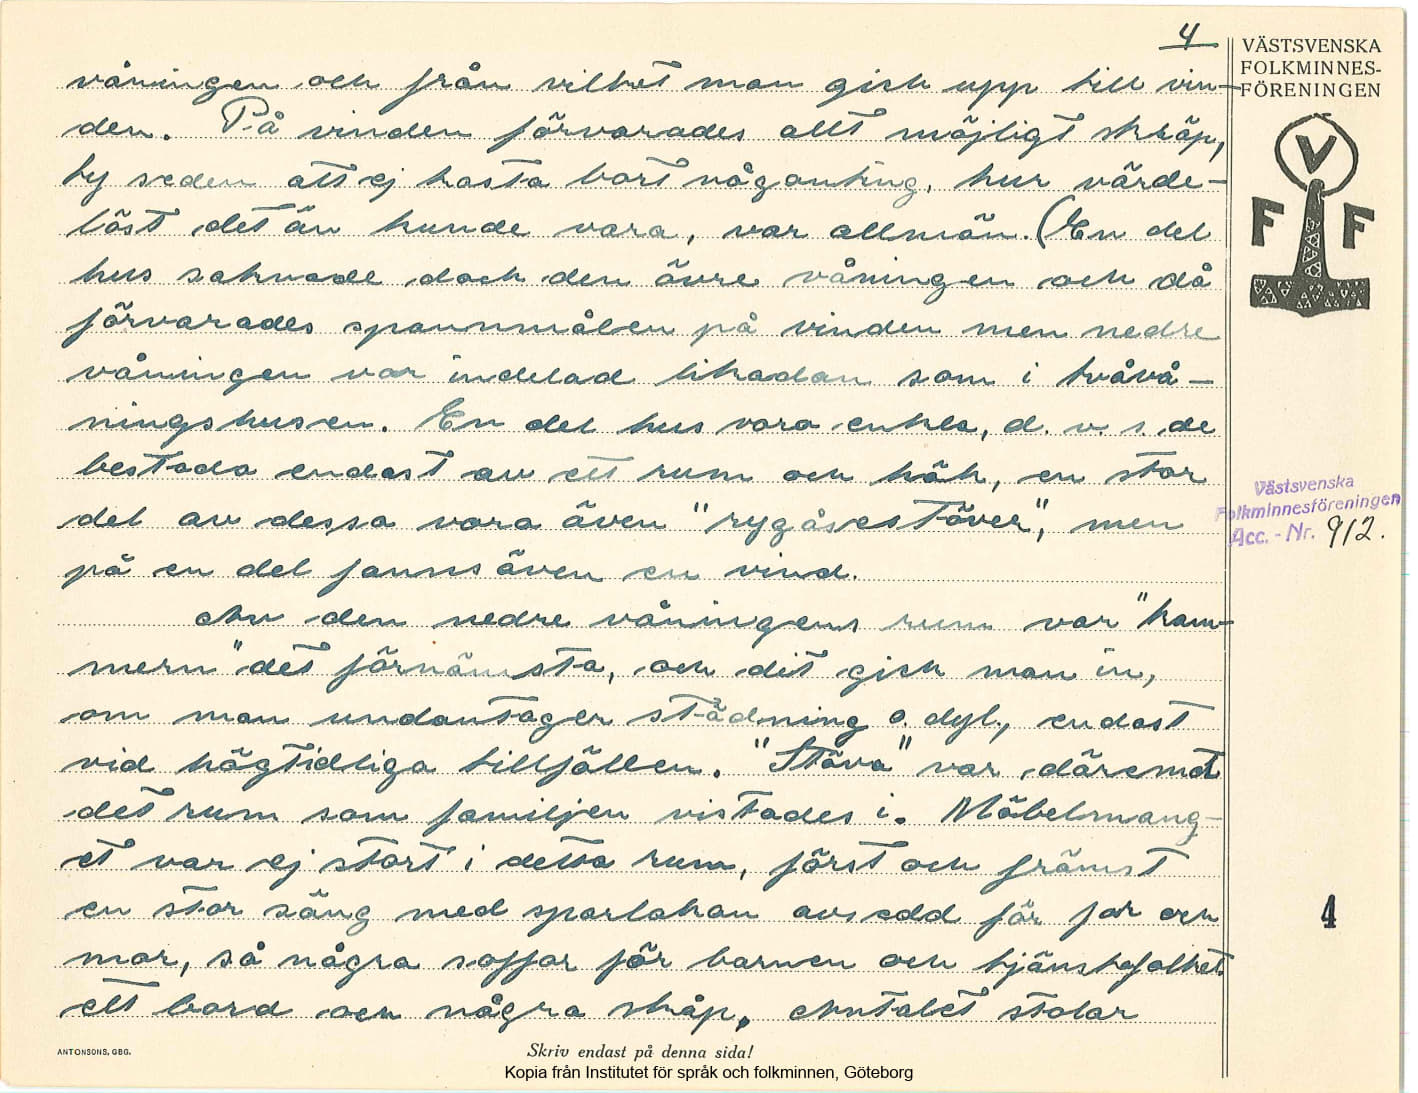 4
VÄSTSVENSKA
FOLKMINNES-
FÖRENINGEN
våningen och från vilket man gick upp till vin-
den. På vinden förvarades allt möjligt skräp,
ty seden att ej kasta bort någonting, hur värde-
löst det än kunde vara, var allmän. (En del
hus saknade dock den övre våningen och då
förvarades spannmålen på vinden men nedre
våningen var indelad likadan som i tvåvå-
ningshusen. En del hus vara enkla, d. v. s. de
bestodo endast av ett rum och kök, en stor
del av dessa voro även "rygåsestöver", men
på en del fanns även en vind.
Av den nedre våningens rum var "kam-
mern" det förnämsta, och dit gick man in,
om man undantager städning o. dyl., endast
vid högtidliga tillfällen. "Ståva" var däremot
det rum som familjen vistades i. Möbelmäng-
et var ej stort i detta rum, först och främst
en stor säng med sparlakan avsedd för far och
mor, så några soffor för barnen och tjänstefolket
ett bord och några skåp. Antalet stolar
V
F F
Västsvenska
Folkminnesföreningen
Acc. - Nr. 912.
4
ANTONSONS, GBG.
Skriv endast på denna sida!
Kopia från Institutet för språk och folkminnen, Göteborg